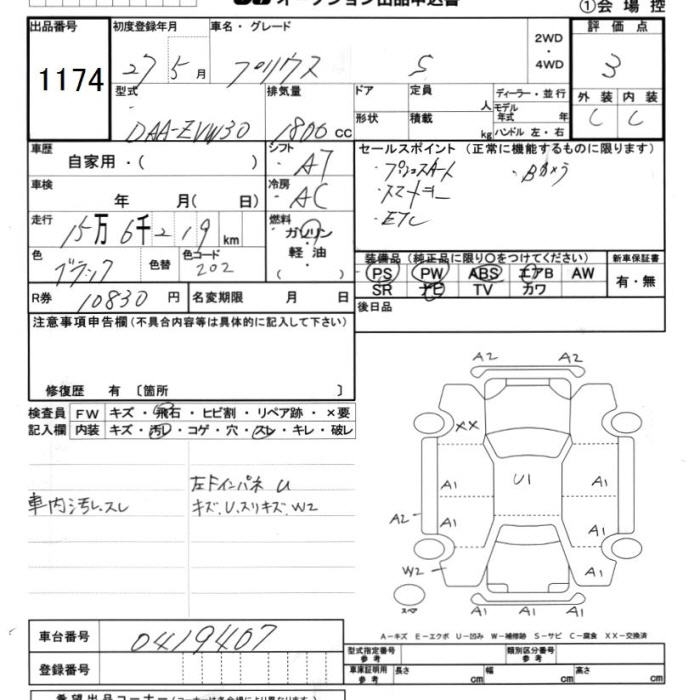 オークション出品申込書
①会場控
出品番号
1174
初度登録年月
27 5月
車名・グレード
プリウス S
2WD
・
4WD
評価点
3
外装 内装
C C
型式
DAA-ZVW30
排気量
1800 cc
ドア
形状
定員
人
積載
kg
ディーラー・並行
モデル
年式 年
ハンドル 左・右
車歴
自家用・( )
シフト
A7
セールスポイント (正常に機能するものに限ります)
・プッシュスタート ・Bカメラ
・スマートキー
・ETC
車検
年 月( 日)
冷房
AC
走行
15万6千219km
燃料
ガソリン
軽油
( )
色
ブラック
色替
色コード
202
装備品 (純正品に限り〇をつけてください)
PS PW ABS エアB AW
SR ナビ TV カワ
新車保証書
有・無
R券 10830円
名変期限 月 日
後日品
注意事項申告欄(不具合内容等は具体的に記入して下さい)
修復歴 有 〔箇所 〕
検査員 FW キズ・飛石・ヒビ割・リペア跡・×要
記入欄 内装 キズ・汚レ・コゲ・穴・スレ・キレ・破レ
車内汚レ.スレ
左Fインパネ U
キズ.U.スリキズ.W2
A2 A2
XX
U1
A1 A1
A2 A1 A1
W2 A1
A1 A1
スペア
A-キズ E-エクボ U-凹み W-補修跡 S-サビ C-腐食 XX-交換済
車台番号 0419407
登録番号
型式指定番号 参考
類別区分番号 参考
車庫証明用 参考 長さ cm 幅 cm 高さ cm
希望出品コーナー(コーナーは各会場により異なります)